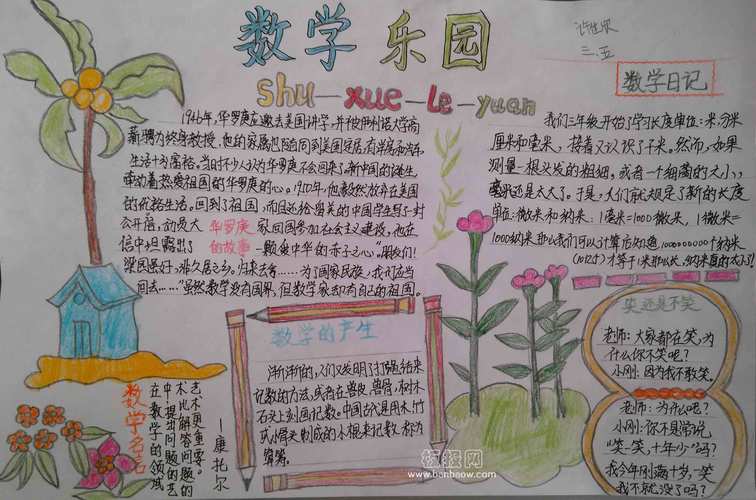 数学乐园
shu-xue-le-yuan
三.五
数学日记
1946年,华罗庚应邀去美国讲学,并被伊利诺大学高
薪聘为终身教授,他的家属也随同到美国定居,有洋房和汽车,
生活十分富裕。当时不少人认为华罗庚不会回来了。新中国的诞生,
牵动着热爱祖国的华罗庚的心。1950年,他毅然放弃在美国
的优裕生活,回到了祖国,而且还给留美的中国学生写了一封
公开信,动员大家回国参加社会主义建设。他在
信中坦露出了一颗爱中华的赤子之心:“朋友们!
梁园虽好,非久居之乡。归来去兮……为了国家民族,我们应当
回去……”虽然数学没有国界,但数学家却有自己的祖国。
华罗庚
的故事
我们三年级开始了学习长度单位:米、分米
厘米和毫米,接着又认识了千米。然而,如果
测量一根头发的粗细,或者一个细菌的大小,
毫米还是太大了。于是,人们就规定了新的长度
单位:微米和纳米:1毫米=1000微米,1微米=
1000纳米那么我们可以计算后知道,1000000000个纳米
(10亿个)才等于1米那么长,纳米真的太小了!
数学的产生
渐渐的,人们又发明了打绳结来
记数的方法,或者在兽皮、兽骨、树木、
石头上刻画记数。中国古代是用木、竹
或小骨头制成的小棍来记数,称为
算筹。
笑还是不笑
老师:大家都在笑,为
什么你不笑呢?
小刚:因为我不敢笑。
老师:为什么呢?
小刚:你不是常说
“笑一笑,十年少”吗?
我今年刚满十岁,一笑
我不就没了吗?
数学名言
在数学的领域
中,提出问题的艺
术比解答问题的
艺术更重要。
——康托尔
板报网
www.banbaow.com